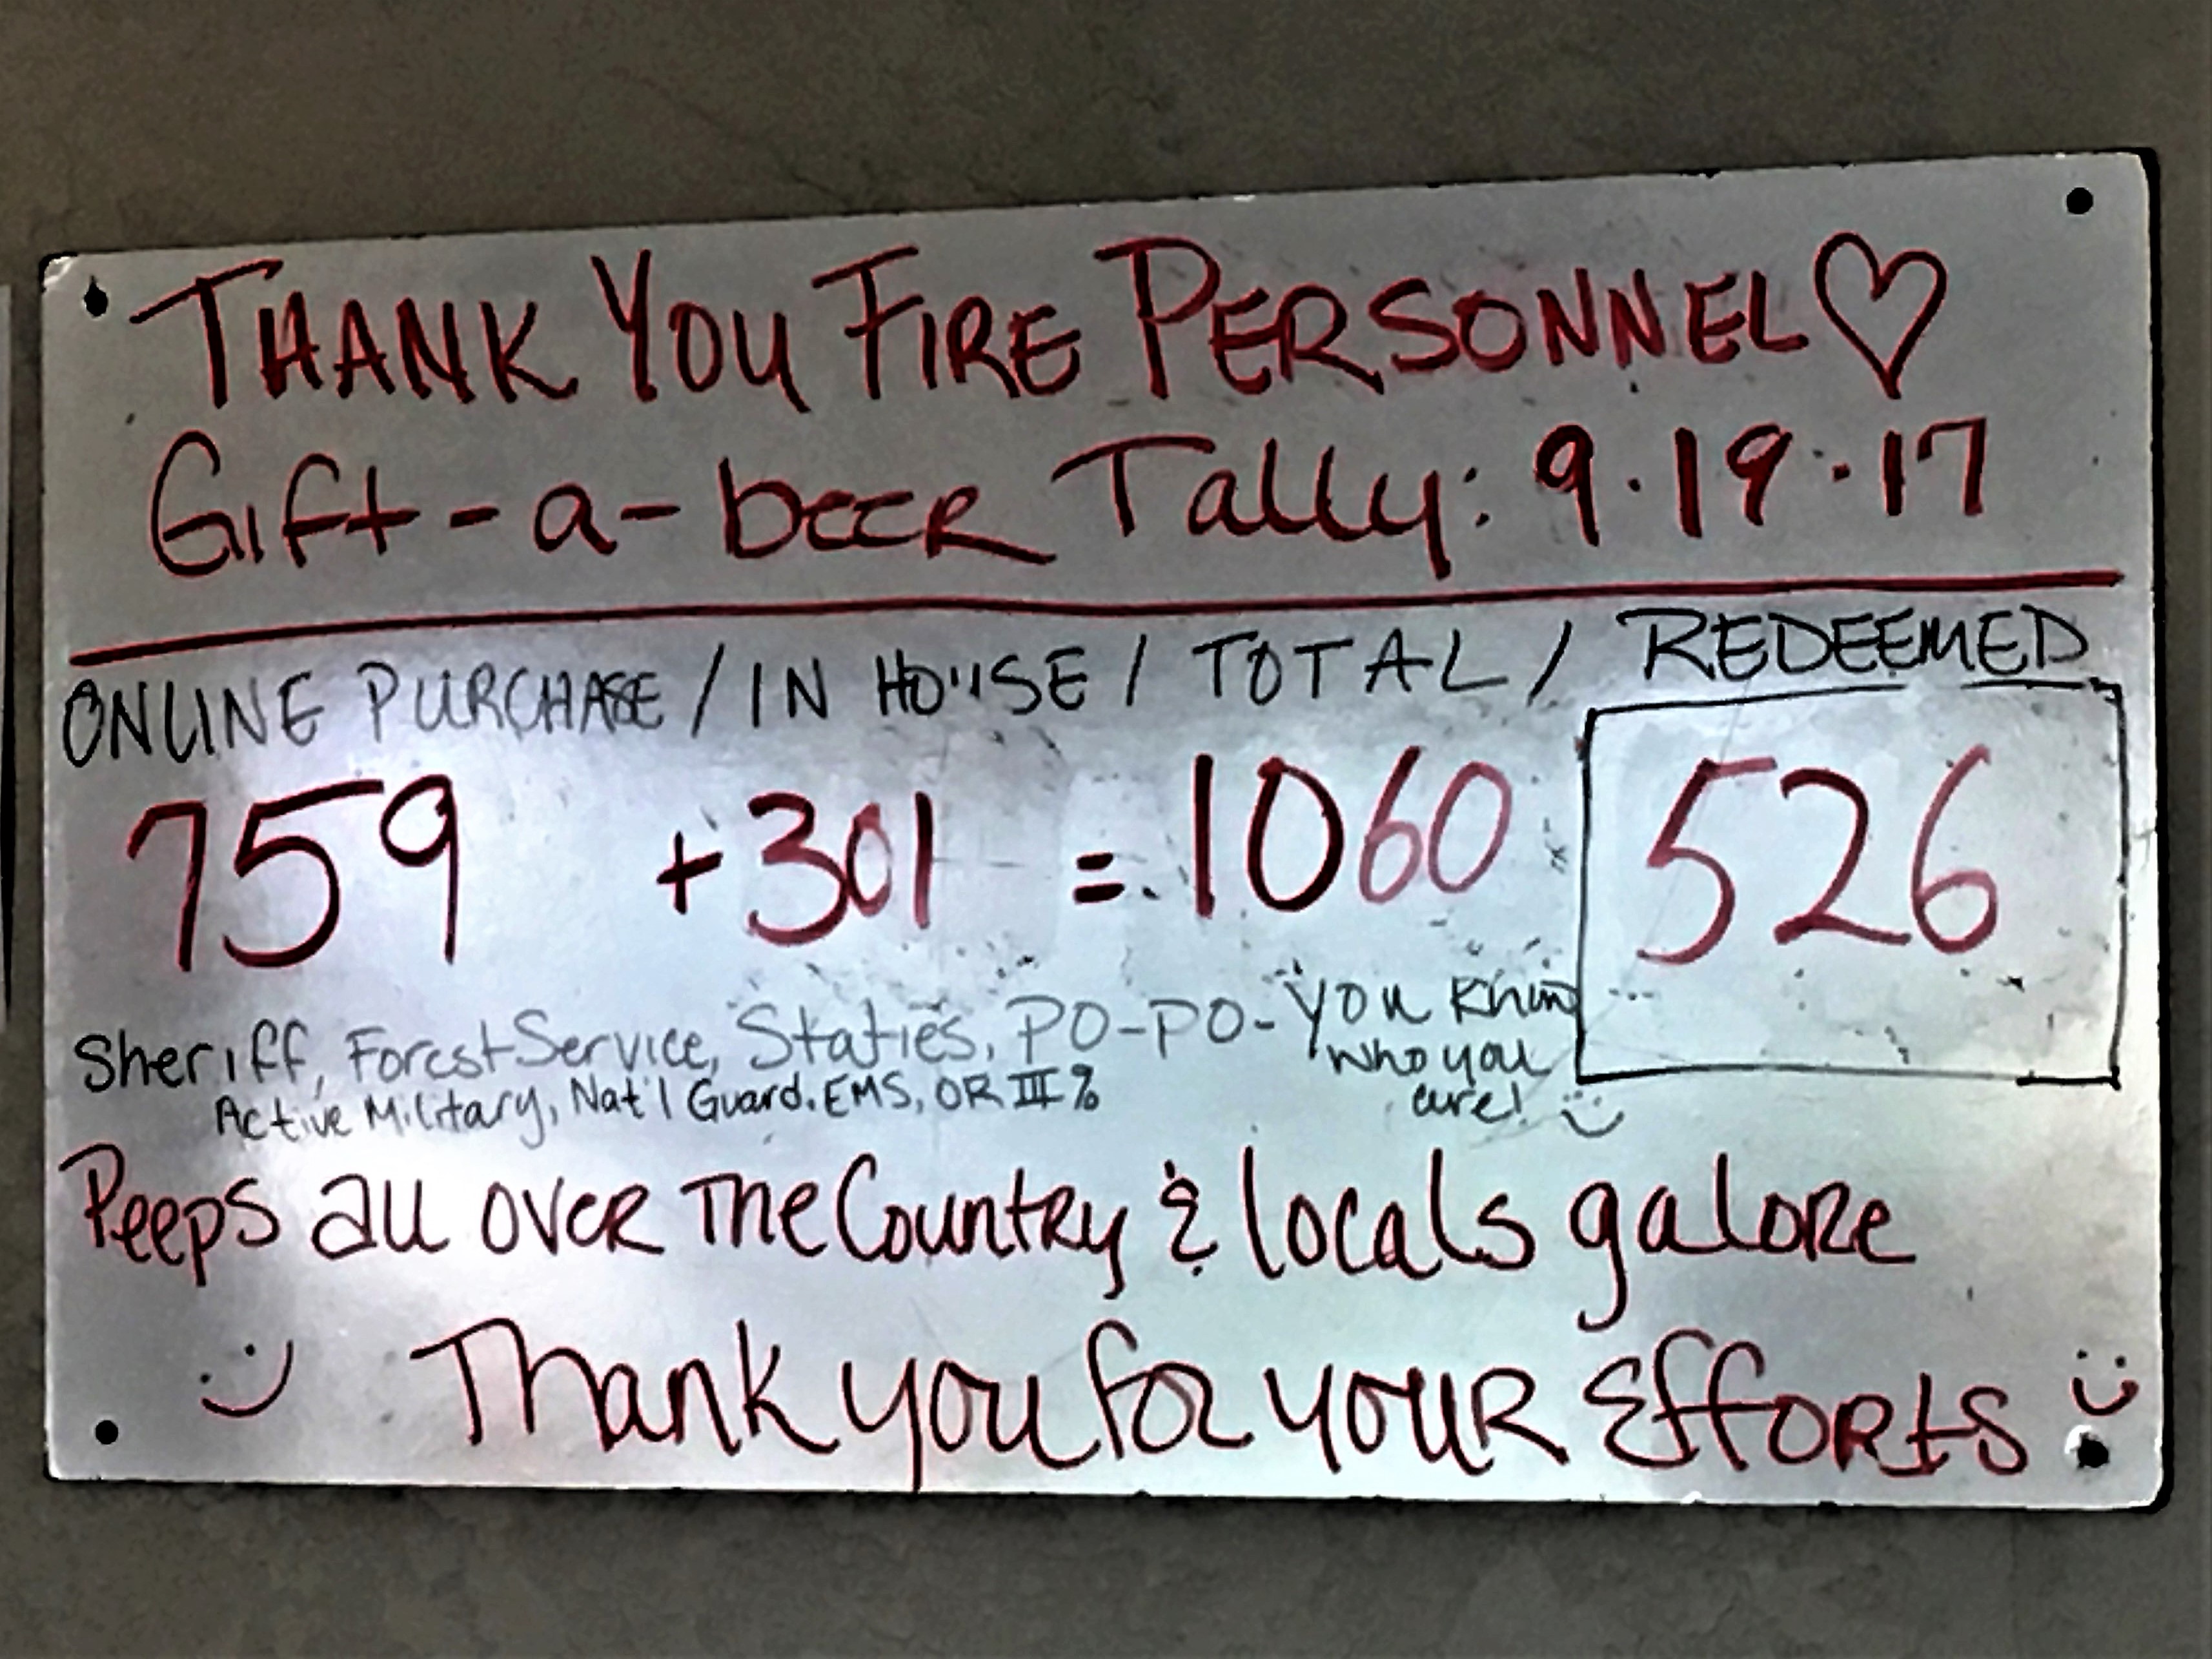 THANK YOU FIRE PERSONNEL♡
Gift-a-beer Tally: 9.19.17
ONLINE PURCHASE / IN HOUSE / TOTAL / REDEEMED
759 +301 = 1060 526
Sheriff, Forest Service, Staties, PO-PO- you know
who you
are! :)
Active Military, Nat'l Guard, EMS, OR III%
Peeps all over the Country & locals galore
:) Thank you for your Efforts :)